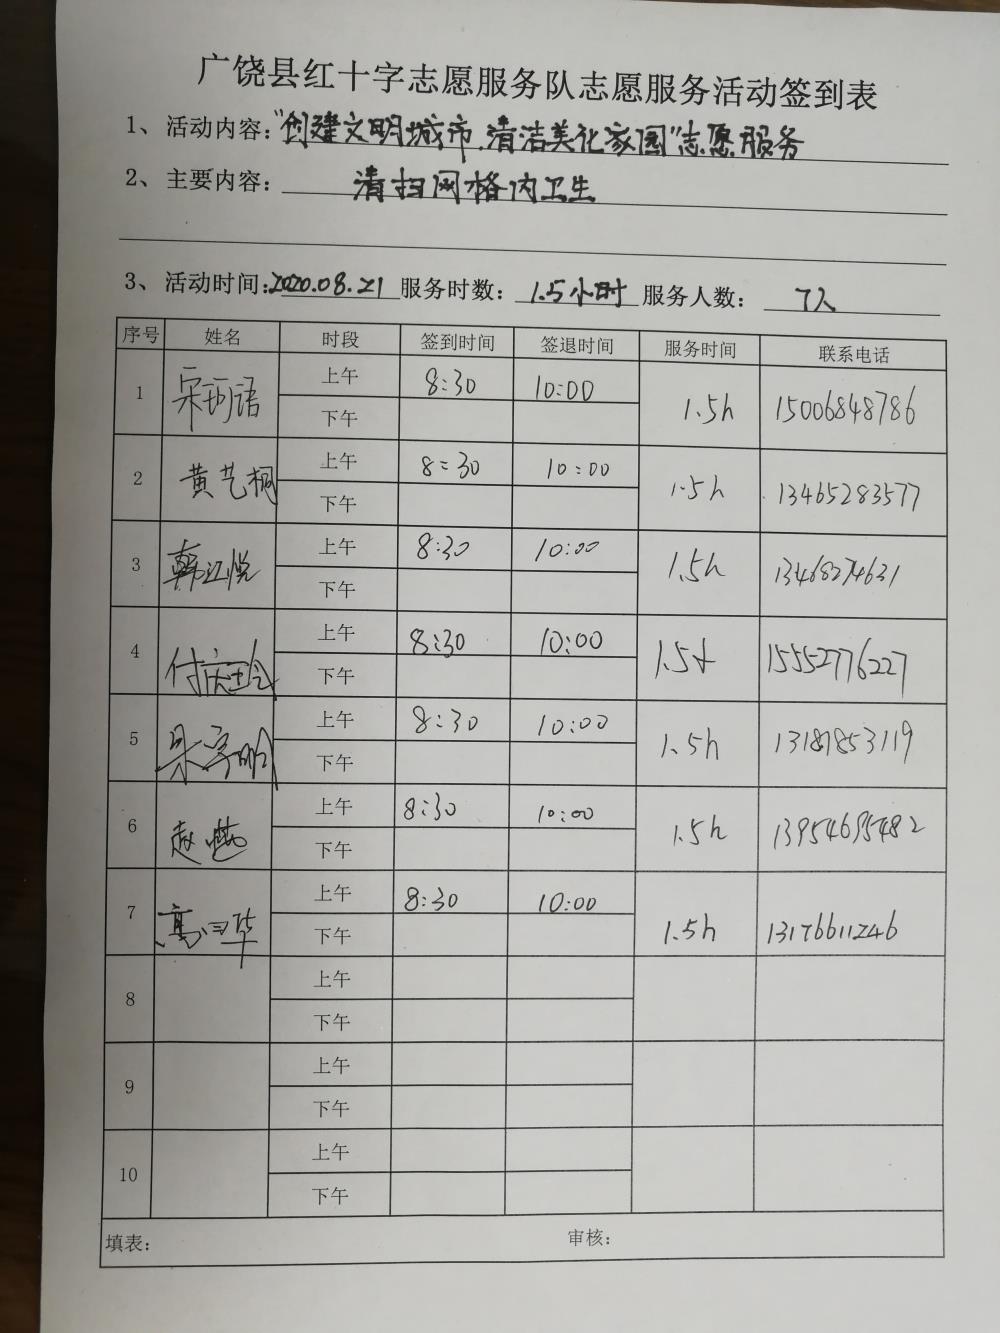 广饶县红十字志愿服务队志愿服务活动签到表
1、活动内容：“创建文明城市,清洁美化家园”志愿服务
2、主要内容：清扫网格内卫生
3、活动时间：2020.08.21 服务时数：1.5小时 服务人数：7人
序号 姓名 时段 签到时间 签退时间 服务时间 联系电话
1 宋珂语 上午 8:30 10:00 1.5h 15006848786
下午
2 黄艺桐 上午 8:30 10:00 1.5h 13465283577
下午
3 韩江悦 上午 8:30 10:00 1.5h 13468274631
下午
4 上午 8:30 10:00 1.5h 15552776227
下午
5 上午 8:30 10:00 1.5h
下午
6 赵 上午 8:30 10:00 1.5h 13954695482
下午
7 高 华 上午 8:30 10:00 1.5h 13176611246
下午
8 上午
下午
9 上午
下午
10 上午
下午
填表： 审核：